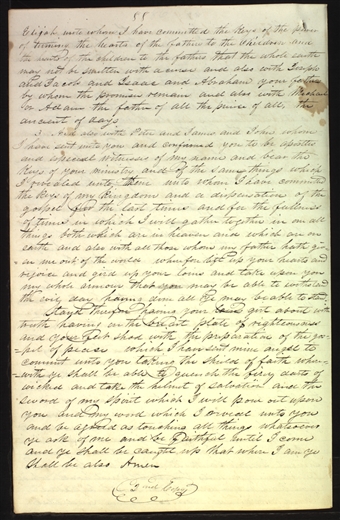 Elijah unto whom I have committed the Keys of the power
of turning the hearts of the fathers to the Children and
the hearts of the children to the fathers that the whole earth
may not be smitten with a curse and also with Joseph
and Jacob and Isaac and Abraham your fathers
by whom the promises remain and also with Michael
or Adam the father of all the prince of all, the
ancient of days
And also with Peter and James and John whom
I have sent unto you and confirmed you to be apostles
and especial witnesses of my name and bear the
Keys of your ministry and of the same things which
I revealed unto them unto whom I have committed
the Keys of my Kingdom and a dispensation of the
gospel for the last time and for the fullness
of times in which I will gather together in one all
things both which are in heaven and which are on
earth and also with all those whom my father hath giv
in me out of the world wherefore lift up your hearts and
rejoice and gird up your loins and take upon you
my whole armour that you may be able to withstand
the evil day having done all ye may be able to stand
Stand therefore having your loins girt about with
truth having on the breast plate of righteousness
and your feet shod with the preparation of the gos
pel of peace which I have sent mine angels to
commit unto you taking the shield of faith where
with ye shall be able to quench the firey darts of
wicked and take the helmet of salvation and the
sword of my spirit which I will pour out upon
you and my word which I reveal unto you
and be agreed as touching all things whatsoever
ye ask of me and be faithful until I come
and ye shall be caught up that where I am ye
shall be also Amen